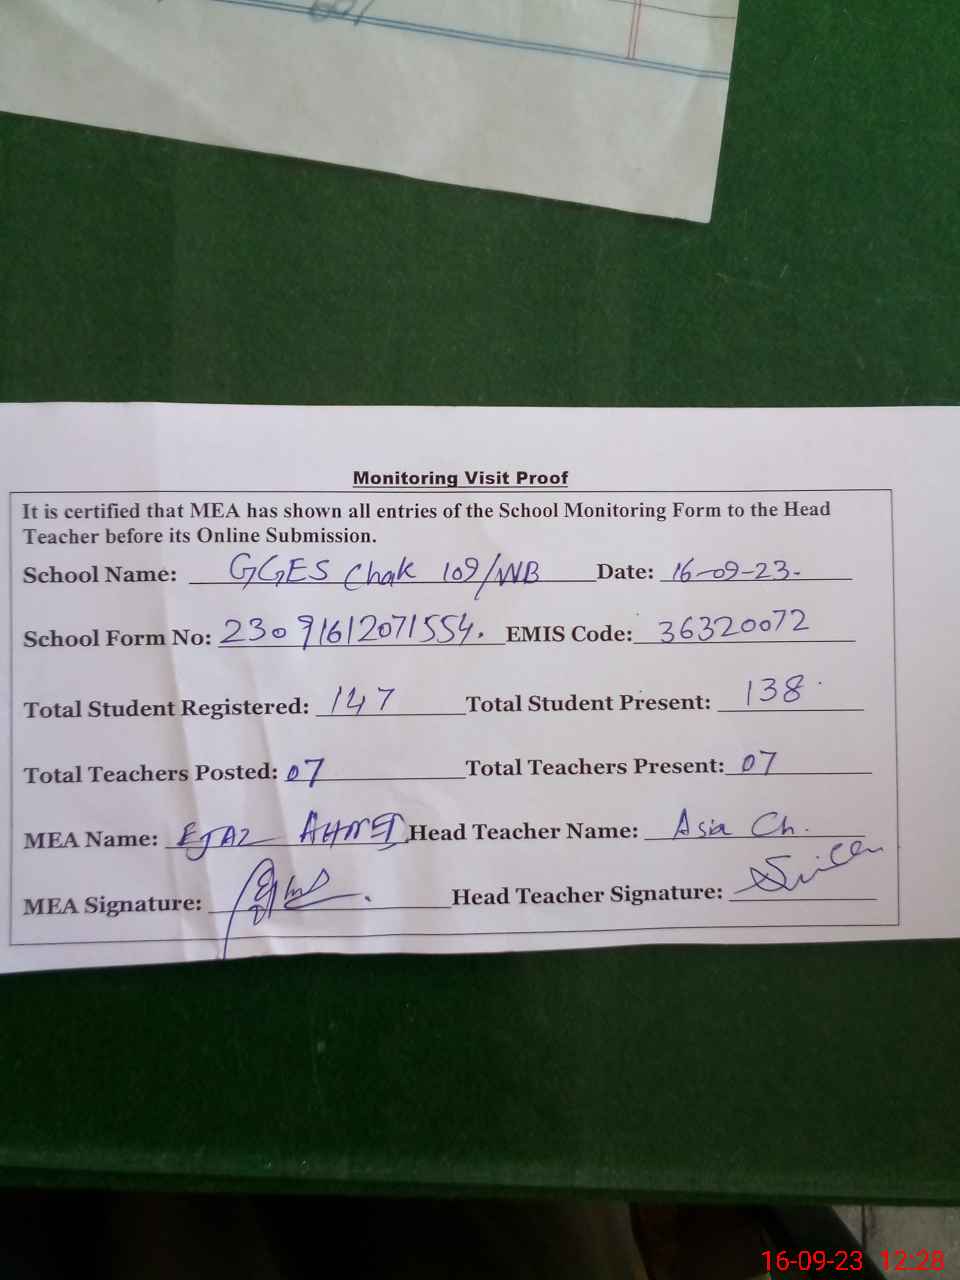 Monitoring Visit Proof
It is certified that MEA has shown all entries of the School Monitoring Form to the Head
Teacher before its Online Submission.
School Name: GGES Chak 109/WB Date: 16-09-23-
School Form No: 23091612071554. EMIS Code: 36320072
Total Student Registered: 147 Total Student Present: 138
Total Teachers Posted: 07 Total Teachers Present: 07
MEA Name: EJAZ AHMED Head Teacher Name: Asia Ch.
MEA Signature: Head Teacher Signature:
16-09-23 12:28